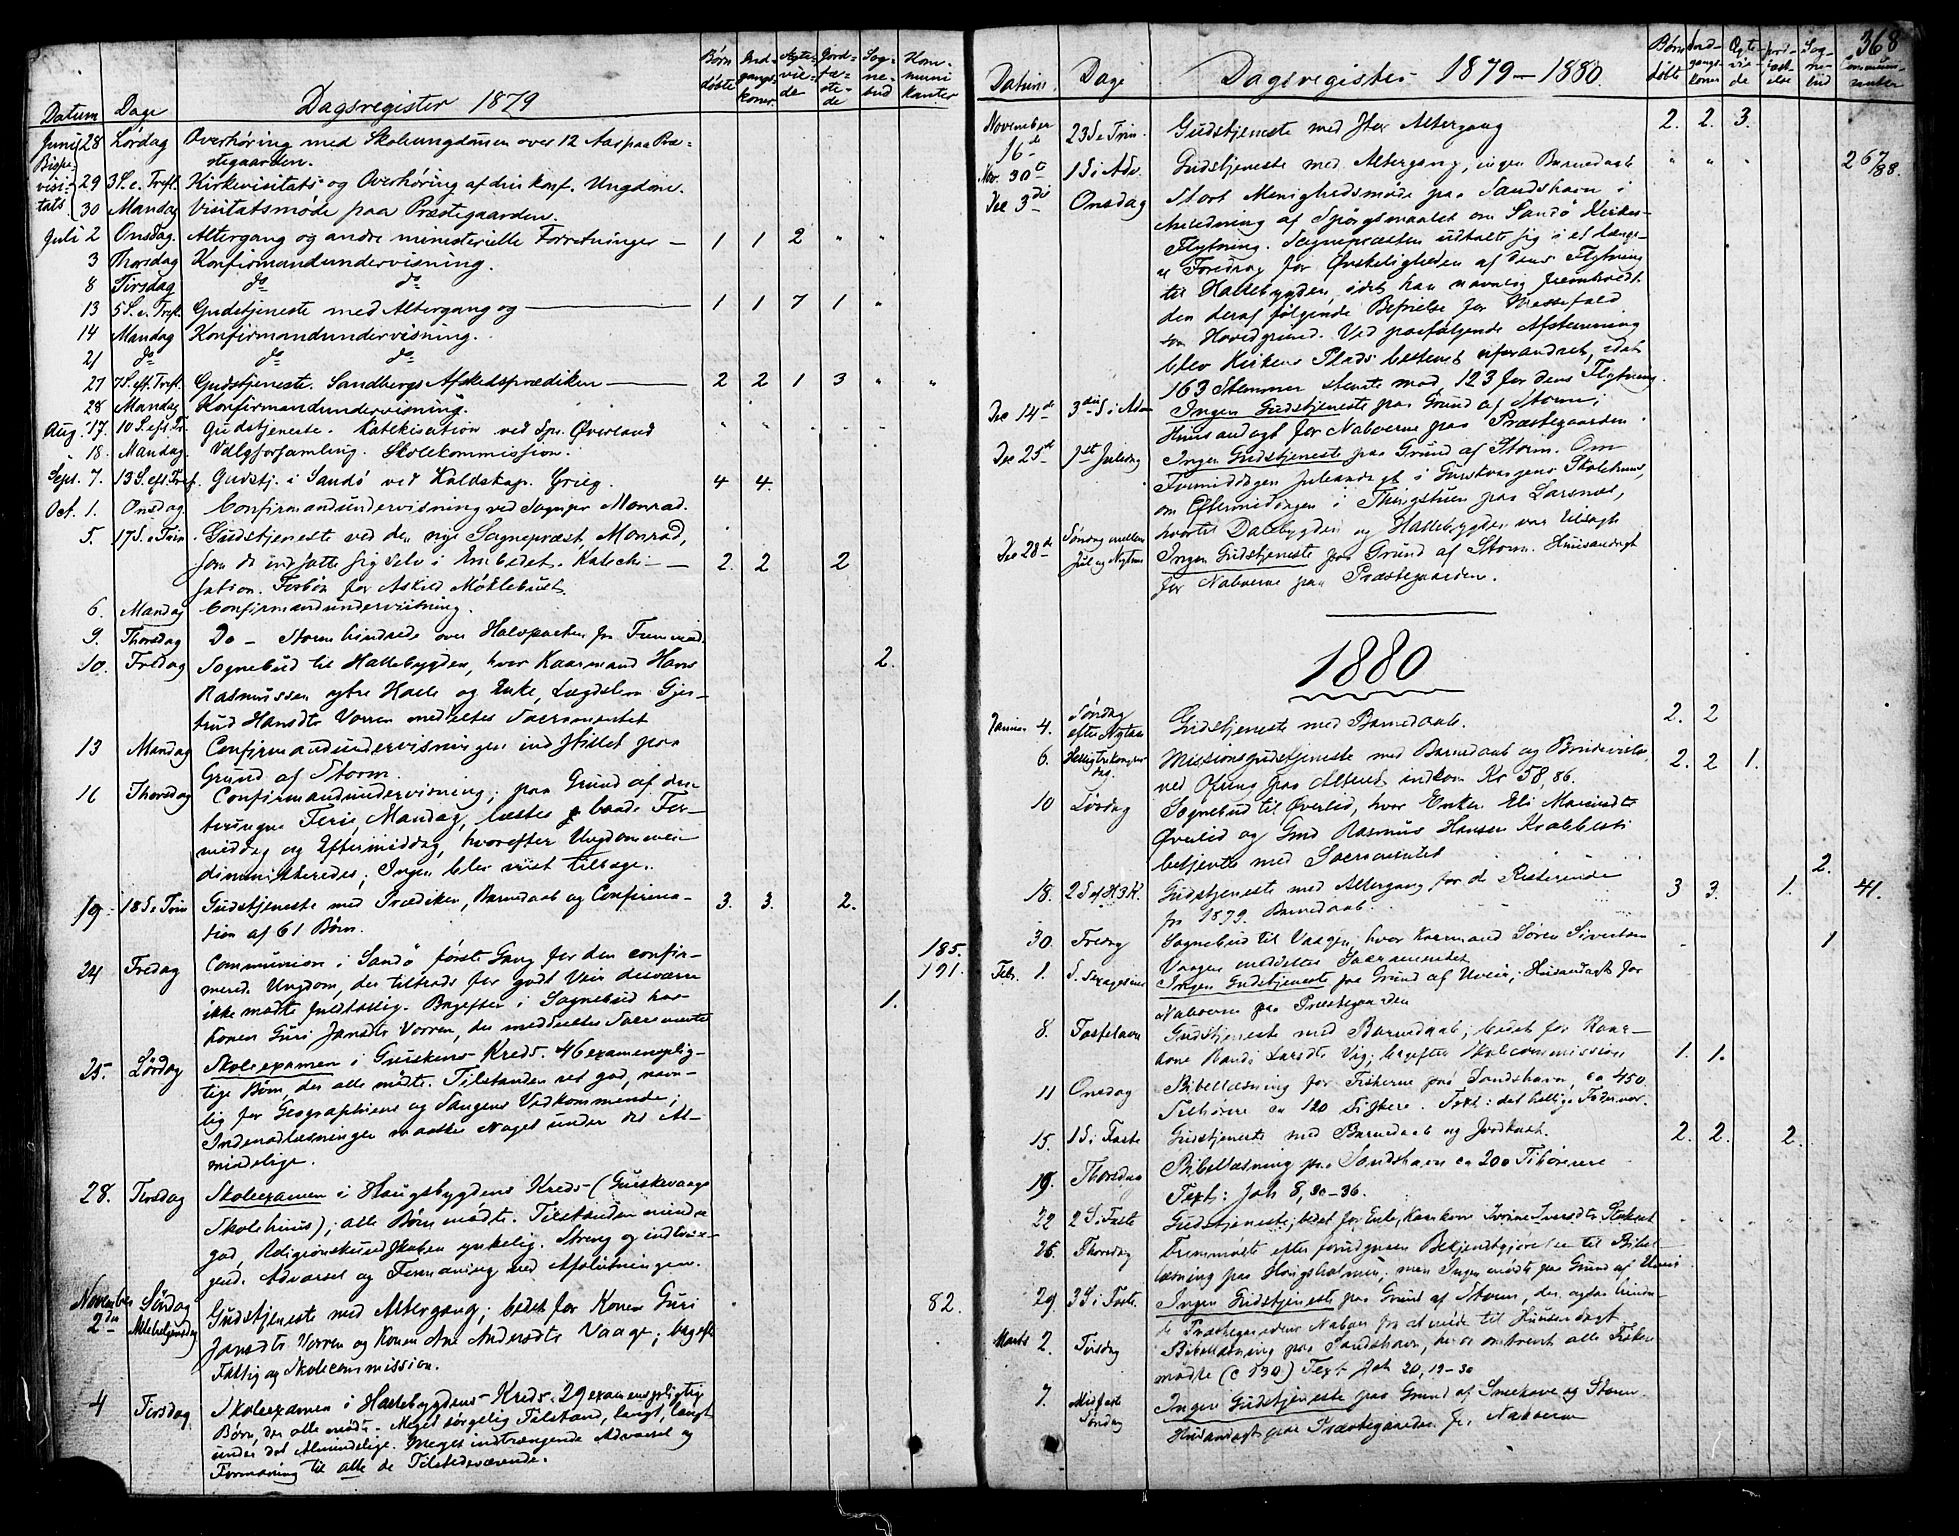 Datum Dage Dagsregister 1879 Børn døbte Indgangskoner Ægteviede Jordfæstede Sognebud Kommunikanter
Juni 28 Lørdag Overhøring med Skoleungdomen over 12 Aar paa Præ-
stegaarden.
Bispevisitats
29 3 S. e. Tref. Kirkevisitats og Overhøring af den konf. Ungdom.
30 Mandag Visitatsmøde paa Præstegaarden.
Juli 2 Onsdag. Altergang og andre ministerielle Forretninger — 1 1 2 " "
3 Thorsdag Konfirmandundervisning.
8 Tirsdag do do
13 5 S. e. Tref. Gudstjeneste med Altergang og — 1 1 7 1 "
14 Mandag Konfirmandundervisning.
21 do do do
27 7 S. eft. Tref. Gudstjeneste. Sandbergs Afskedsprædiken — 2 2 1 3 " "
28 Mandag Konfirmandundervisning.
Aug. 17. 10 S. eft. Tr. Gudstjeneste. Katekisation ved Spr. Øverland
18. Mandag. Valgforsamling. Skolekommission.
Sept. 7. 13 S. eft. Tref. Gudstj. i Sandø ved Kaldskap. Grieg. 4 4.
Oct. 1. Onsdag Confirmandundervisning ved Sognepr Monrad.
5. 17 S. e Trin Gudstjeneste ved den nye Sognepræst Monrad,
som da indsatte sig selv i Embedet. Katechi- — 2. 2 2
sation. Forbøn for Askild Møklebust.
6. Mandag Confirmandundervisning.
9. Thorsdag Do – Storm hindrede over Halvparten fra Fremmøde.
10. Fredag Sognebud til Hallebygden, hvor Kaarmand Hans 2.
Rasmussen ytre Halle og Enke, Lægdslem Gjer-
trud Hansdtr Vorren meddeltes Sacramentet
13 Mandag Confirmandundervisningen indstillet paa
Grund af Storm.
16 Thorsdag Confirmandundervisning; paa Grund af den
tvungne Ferie Mandag, læstes baade For-
middag og Eftermiddag, hvorefter Ungdommen
dimmitteredes; Ingen blev viist tilbage.
19. 18 S e Trin Gudstjeneste med Prædiken, Barnedaab og Confirma- 3. 3. 2.
tion af 61 Børn.
185.
24 Fredag Communion i Sandø første Gang for den confir- 191.
merede Ungdom, der tiltrods for godt Veir desværre
ikke mødte fuldtallig. Bagefter i Sognebud hos 1.
Konen Guri Jansdtr Vorren, der meddeltes Sacramentet
25. Lørdag Skoleexamen i Guskens Kreds. 46 examenplig-
tige Børn der alle mødte. Tilstanden ret god, navn-
lig for Geographiens og Sangens Vedkommende;
Indenadlæsningen maaske Noget under det Al-
mindelige.
28. Tirsdag Skoleexamen i Haugsbygdens Kreds (Gurskevaags
Skolehuus); alle Børn mødte. Tilstanden mindre
god, Religionskundskaben ynkelig. Streng og indtræn-
gende Advarsel og Formaning ved Afslutningen.
November 2den Søndag Allehelgensdag Gudstjeneste med Altergang; bedet for Konen Guri 82.
Jansdtr Vorren og Konen Ane Andersdtr Vaage; bagefter
Fattig og Skolecommission.
4 Tirsdag Skoleexamen i Hallebygdens Kreds. 29 examenspligtige
Børn, der alle mødte. Meget sørgelig Tilstand, langt, langt
under det Almindelige. Meget indtrængende Advarsel og
Formaning til alle de Tilstedeværende.
368
Datum Dage Dagsregister 1879–1880. Børn døbte Indgangskoner Ægteviede Jordfæstelse Sognebud Communicanter
November 16de 23 S e Trin. Gudstjeneste med Altergang 2. 2. 3.
Nov. 30te 1 S i Adv. Gudstjeneste med Altergang, ingen Barnedaab " " " 267/88.
Dec 3die Onsdag Stort Menighedsmøde paa Sandshavn i
Anledning af Spørgsmaalet om Sandø Kirkes
Flytning. Sognepræsten udtalte sig i et længe-
re Foredrag for Ønskeligheden af dens Flytning
til Hallebygden, idet han navnlig fremholdt
den deraf følgende Befrielse for Messefald
som Hovedgrund. Ved paafølgende Afstemning
blev Kirkens Plads bestemt uforandret, idet
163 Stemmer stemte mod 123 for dens Flytning.
Dec 14de 3die S i Adv Ingen Gudstjeneste paa Grund af Storm;
Huusandagt for Naboerne paa Præstegaarden
Dec 25de 1ste Juledag Ingen Gudstjeneste paa Grund af Storm. Om
Formiddagen Juleandagt i Gurskvaagens Skolehuus,
om Eftermiddagen i Thingstuen paa Larsnæs,
hvortil Dalsbygden og Hallebygden var tilsagt
Dec 28de Søndag mellem Jul og Nytaar Ingen Gudstjeneste paa Grund af Storm. Huusandagt
for Naboerne paa Præstegaarden.
1880
Januar 4. Søndag efter Nytaar Gudstjeneste med Barnedaab. 2. 2
6. Helligtrekongersdag. Missionsgudstjeneste med Barnedaab og Brudevielse, 2. 2 1.
ved Ofring paa Alteret indkom Kr 58,86.
10 Lørdag Sognebud til Øverlid, hvor Enken Eli
Øverlid og Gmd Rasmus Hansen Krabbesti
betjentes med Sacramentet 2.
18. 2 S ef H3K. Gudstjeneste med Altergang for de Resterende 3 3. 1. 41.
fra 1879. Barnedaab.
30. Fredag Sognebud til Vaagen, hvor Kaarmand Søren Sivertsen 1
Vaagen meddeltes Sacramentet
Feb. 1. S. Sexagesima Ingen Gudstjeneste paa Grund af Uveir; Huusandagt for
Naboerne paa Præstegaarden
8. Fastelavn Gudstjeneste med Barnedaab; bedet for Kaar-
kone Randi Larsdtr Vig; bagefter Skolecommission 1. 1.
11 Onsdag Bibellæsning for Fiskerne paa Sandshavn, ca 450
Tilhørere ca 120 Fiskere. Text: det hellige Fadervor.
15. 1 S i Faste Gudstjeneste med Barnedaab og Jordkast. 2. 2. 2.
19. Thorsdag Bibellæsning paa Sandshavn ca 200 Tilhørere
Text: Joh 8, 30–36.
22 2 S i Faste Gudstjeneste, bedet for Enke, Kaarkone Iversdtr
26. Thorsdag Fremmødte efter forudgaaen Bekjendtgjørelse til Bibel-
læsning paa Haugsholmen; men Ingen mødte paa Grund af Uveir
29 3 S i Faste. Ingen Gudstjeneste paa Grund af Storm, der ogsaa hindre-
de Præstegaardens Naboer fra at møde til Huusandagt
Marts 2. Tirsdag Bibellæsning paa Sandshavn, hvor omtrent alle Fiskere
mødte (c 530) Text Joh 20, 19–30
7. Midfaste Søndag Ingen Gudstjeneste paa Grund af Snekave og Storm.
Huusandagt paa Præstegaarden for Naboerne